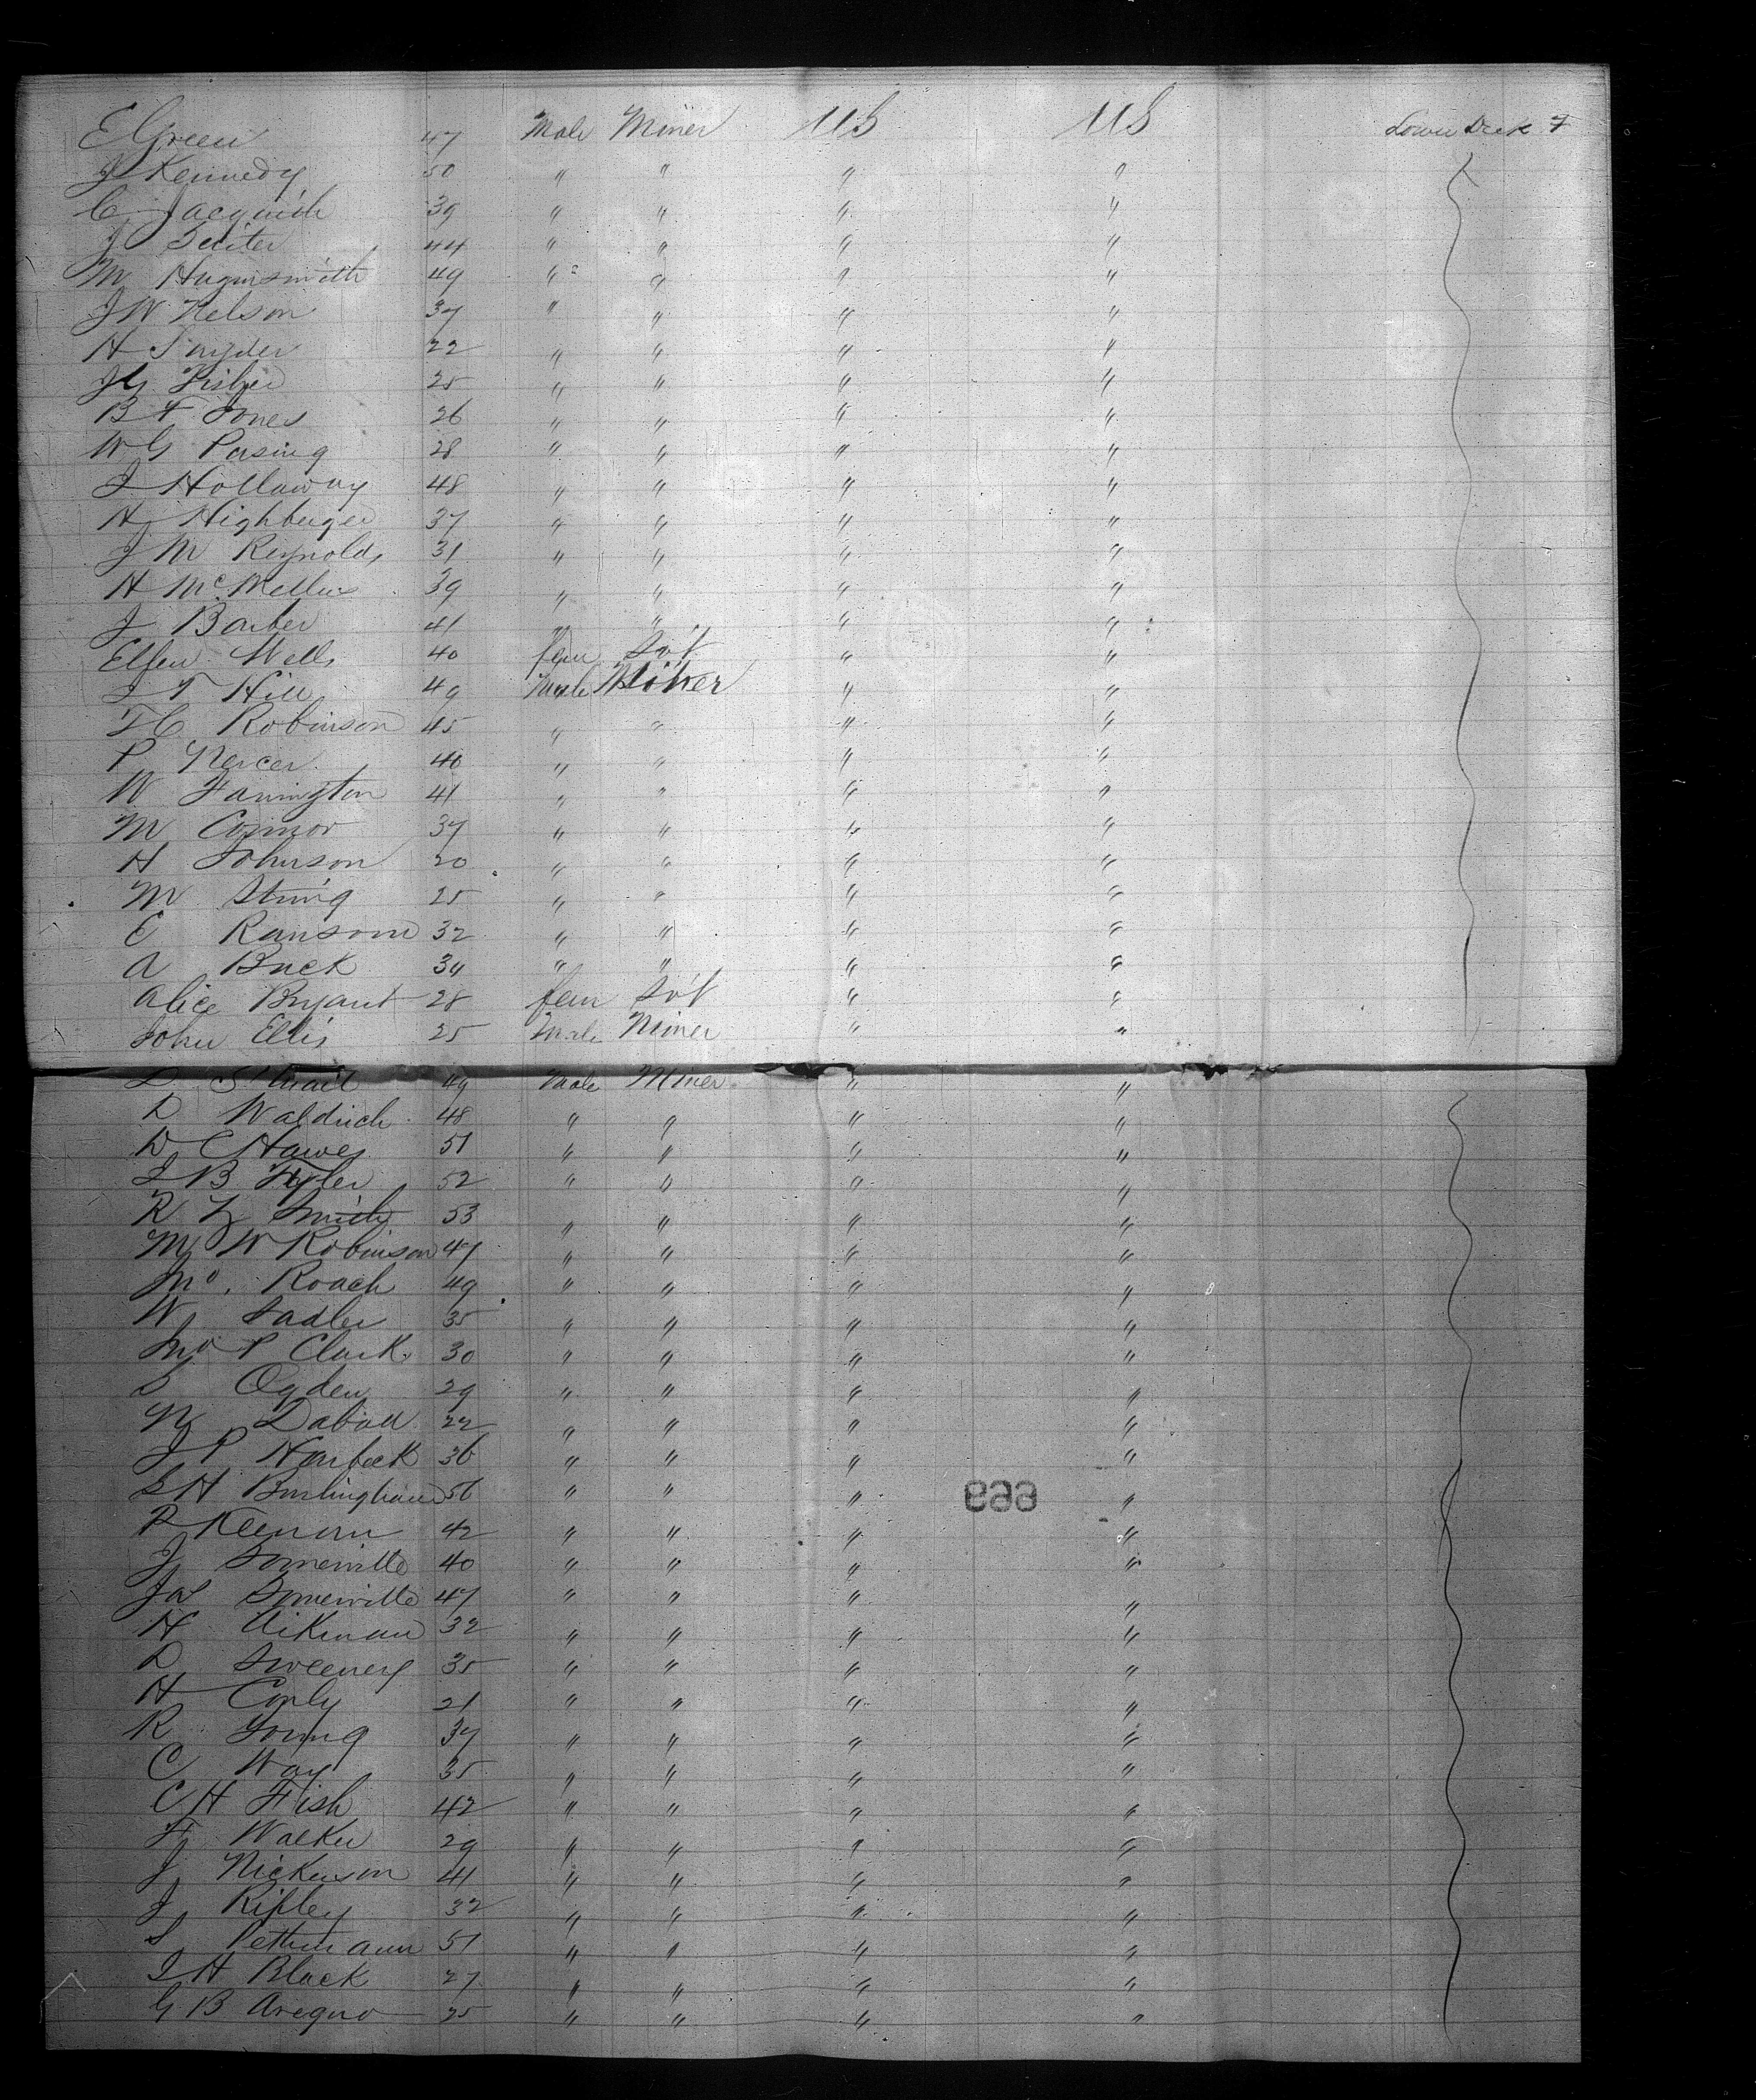 E Green 47 Male Miner US US Lower Deck F
J Kennedy 50 " " " "
C Jacquish 39 " " " "
J Suiter 44 " " " "
M Hugensmith 49 " " " "
J W Nelson 37 " " " "
H Snyder 22 " " " "
J G Fisher 25 " " " "
B F Jones 26 " " " "
W G Pasing 28 " " " "
J Hollaway 48 " " " "
H Highberger 37 " " " "
J M Reynolds 31 " " " "
H Mc 39 " " " "
J Barber 41 " " " "
Ellen Wells 40 fem " "
J T Hill 49 Male Miner " "
F C Robinson 45 " " " "
P Mercer 40 " " " "
W Farrington 41 " " " "
M Connor 37 " " " "
H Johnson 20 " " " "
M String 25 " " " "
E Ransom 32 " " " "
A Buck 34 " " " "
Alice Bryant 28 fem " "
John Ellis 25 Male Miner " "
49 Male Miner " "
D Waldrich 48 " " " "
D C Hawes 51 " " " "
J B Tyler 52 " " " "
R Z Smith 53 " " " "
M W Robinson 47 " " " "
Mo. Roach 49 " " " "
W Sadler 35 " " " "
Mo P Clark 30 " " " "
S Ogden 29 " " " "
N Daball 22 " " " "
J P Norbeck 36 " " " "
S H Burlingham 56 " " " "
P Keenan 42 " " " "
J Somerville 40 " " " "
Jas Somerville 47 " " " "
H Aikman 32 " " " "
D Sweeney 35 " " " "
H Conly 21 " " " "
R Young 37 " " " "
C Way 35 " " " "
C H Fish 42 " " " "
F Walker 29 " " " "
J Nickerson 41 " " " "
J Ripley 32 " " " "
S Pethmann 51 " " " "
J H Black 27 " " " "
G B Areguo 25 " " " "